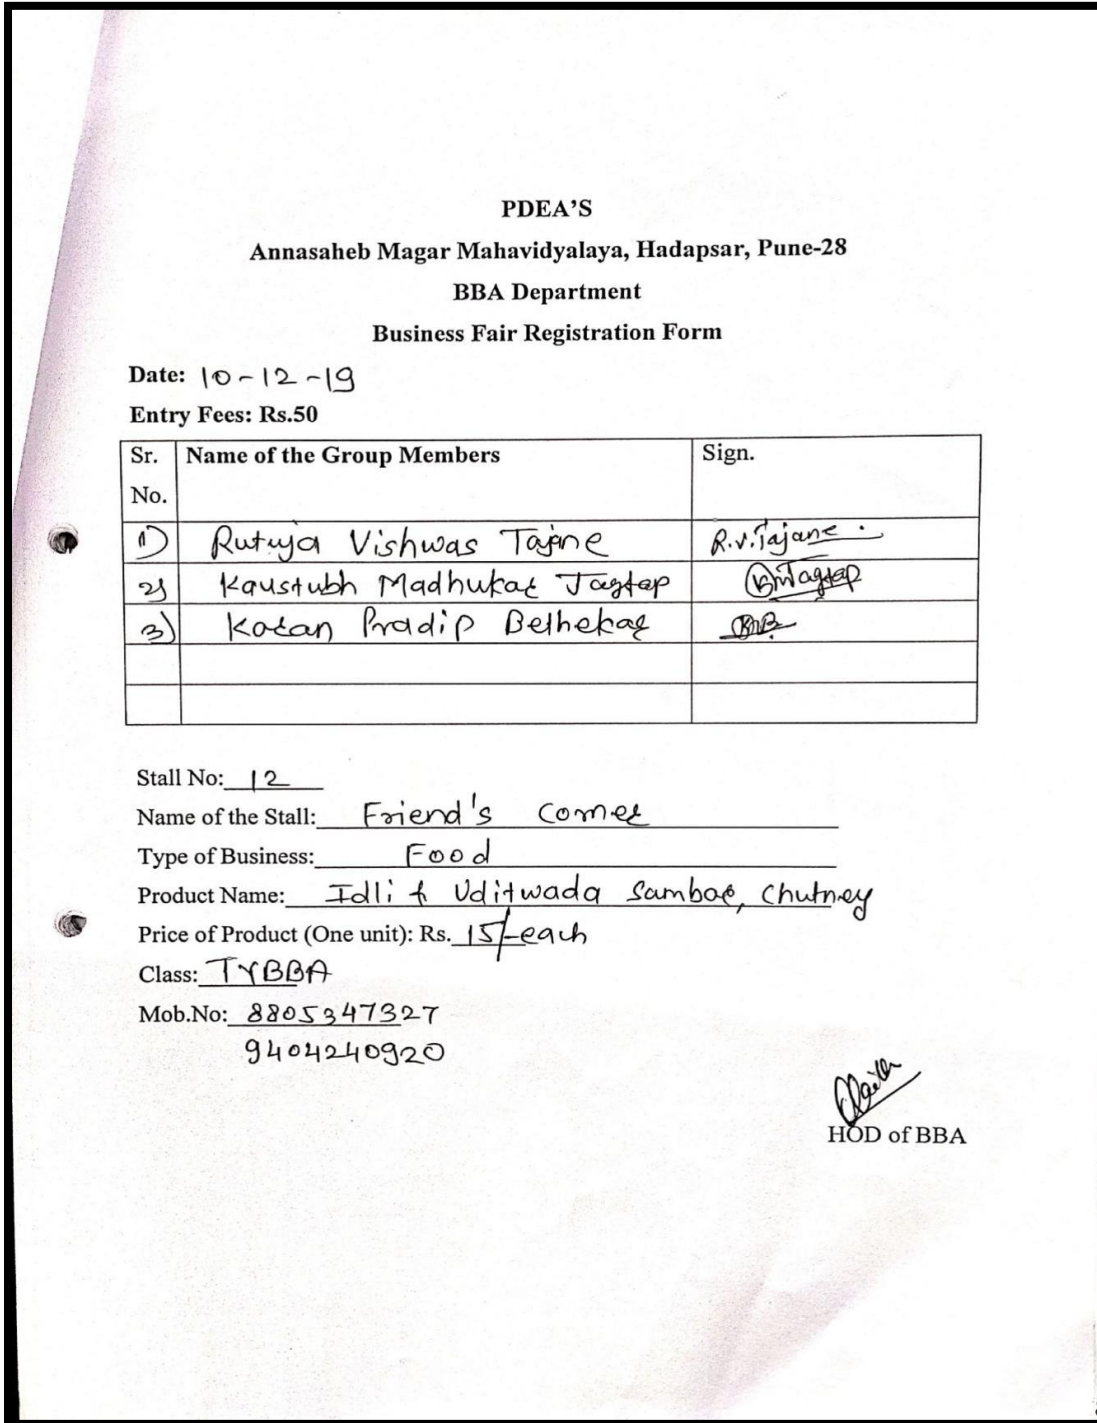 PDEA'S
Annasaheb Magar Mahavidyalaya, Hadapsar, Pune-28
BBA Department
Business Fair Registration Form
Date: 10-12-19
Entry Fees: Rs.50
Sr. No. Name of the Group Members Sign.
1) Rutuja Vishwas Tajane R.V.Tajane
2) Kaustubh Madhukar Jagtap KMJagtap
3) Karan Pradip Bethekar
Stall No: 12
Name of the Stall: Friend's Corner
Type of Business: Food
Product Name: Idli & Uditwada Sambar, Chutney
Price of Product (One unit): Rs. 15/- each
Class: TYBBA
Mob.No: 8805347327
9404240920
HOD of BBA